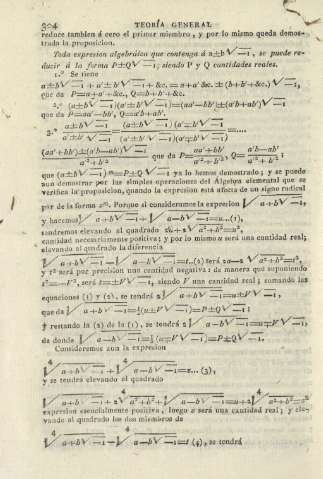 304 TEORÍA GENERAL
reduce tambien á cero el primer miembro, y por lo mismo queda demos-
trada la proposicion.
Toda expresion algebráica que contenga á ±b√−1, se puede re-
ducir á la forma P±Q√−1; siendo P y Q cantidades reales.
1.º Se tiene
a±b√−1 + a'±b'√−1 + &c. = a+a' &c. ±(b+b'+&c.)√−1,
que da P=a+a'+&c., Q=b+b'+&c.
2.º (a±b√−1)(a'±b'√−1)=(aa'−bb')±(a'b+ab')√−1
que da P=aa'−bb', Q=a'b+ab'.
3.º a±b√−1 / a'±b'√−1 = (a±b√−1)(a'∓b'√−1) / (a'±b'√−1)(a'∓b'√−1) =....
(aa'+bb')±(a'b−ab')√−1 / a'²+b'² que da P= aa'+bb' / a'²+b'², Q= a'b−ab' / a'²+b'² :
que (a±b√−1)ᵐ=P±Q√−1 ya lo hemos demostrado; y se puede
aun demostrar por las simples operaciones del Algebra elemental que se
verifica la proposicion, quando la expresion está afecta de un signo radical
par de la forma 2ᵐ. Porque si consideramos la expresion √a+b√−1,
y hacemos √a+b√−1 + √a−b√−1=u...(1),
tendremos elevando al quadrado 2a+2√a²+b²=u²,
cantidad necesariamente positiva; y por lo mismo u será una cantidad real;
elevando al quadrado la diferencia
√a+b√−1 − √a−b√−1=t...(2) será 2a−2√a²+b²=t²,
y t² será por precision una cantidad negativa: de manera que suponiendo
t²=−V², será t=±V√−1, siendo V una cantidad real; sumando las
equaciones (1) y (2), se tendrá 2√a+b√−1=u±V√−1,
que da √a+b√−1=½(u+V√−1)=P±Q√−1;
y restando la (2) de la (1), se tendrá 2√a−b√−1=u∓V√−1,
de donde √a−b√−1=½(u∓V√−1)=P∓Q√−1.
Consideremos aun la expresion
⁴√a+b√−1 + ⁴√a−b√−1=z... (3),
y se tendrá elevando al quadrado
√a+b√−1 + 2⁴√a²+b² + √a−b√−1=u+2⁴√a²+b²=z²
expresion esencialmente positiva, luego z será una cantidad real; y ele-
vando al quadrado los dos miembros de
⁴√a+b√−1 − ⁴√a−b√−1=t (4), se tendrá